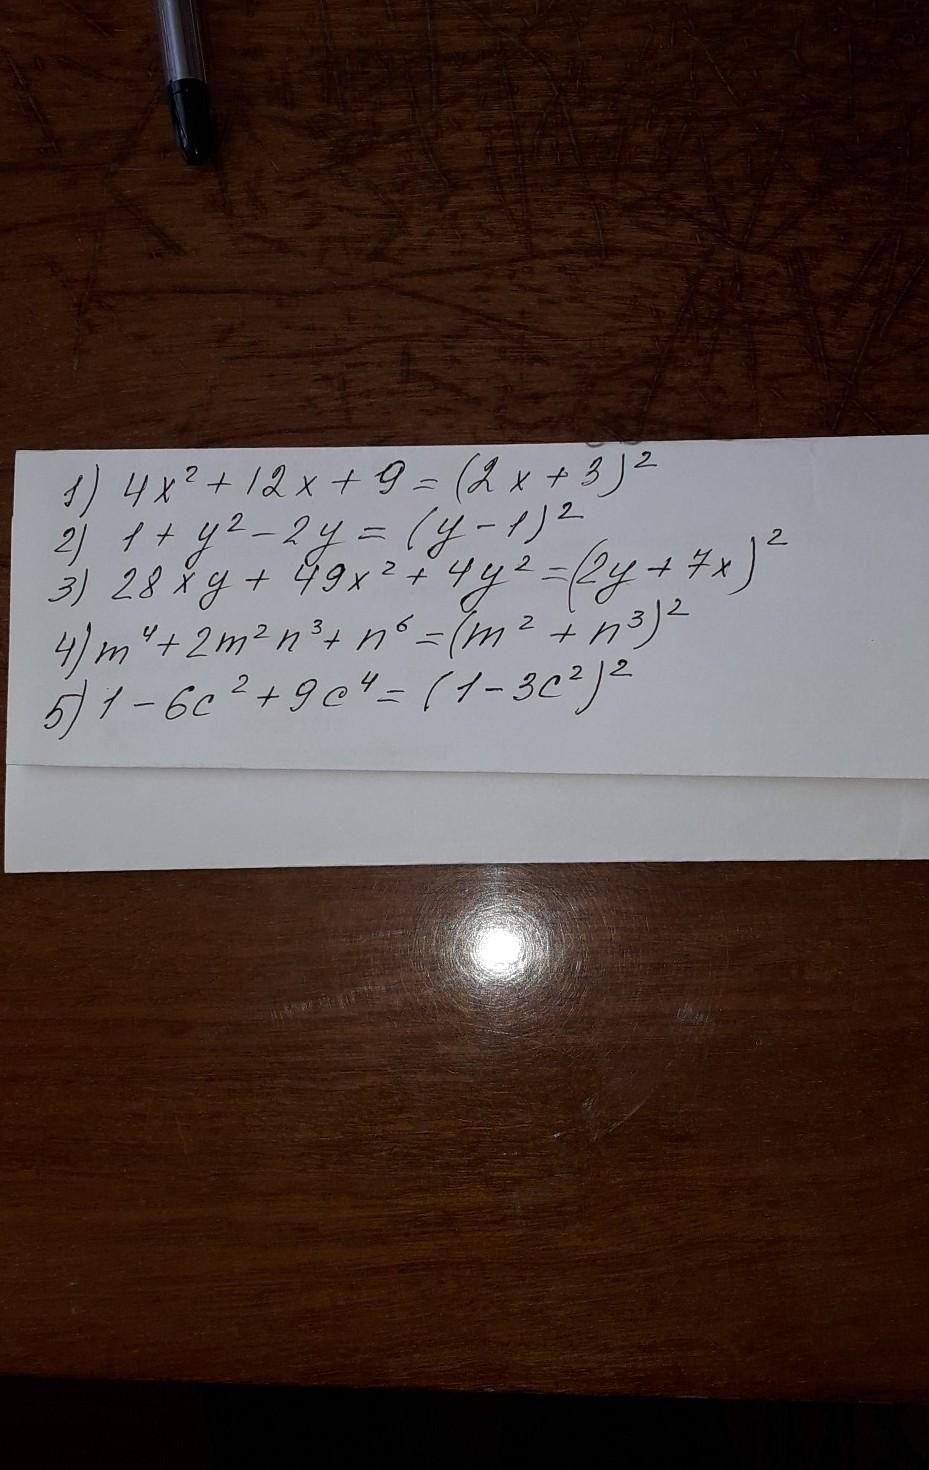 1) 4x² + 12x + 9 = (2x + 3)²
2) 1 + y² - 2y = (y - 1)²
3) 28xy + 49x² + 4y² = (2y + 7x)²
4) m⁴ + 2m²n³ + n⁶ = (m² + n³)²
5) 1 - 6c² + 9c⁴ = (1 - 3c²)²